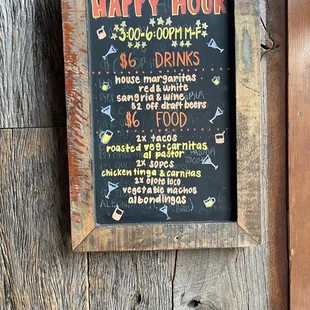 HAPPY HOUR
3:00-6:00PM M-F
$6 DRINKS
house margaritas
red & white
sangria & wine
$2 off draft beers
$6 FOOD
2x tacos
roasted veg · carnitas
al pastor
2x sopes
chicken tinga & carnitas
2x elote loco
vegetable nachos
albondingas